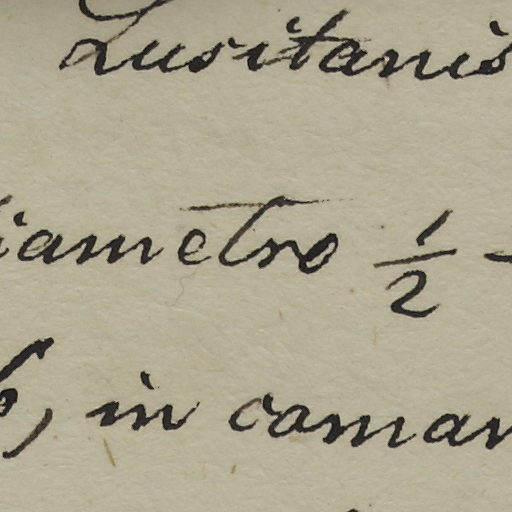 Lusitanis
iametro 1/2 -
b, in caman